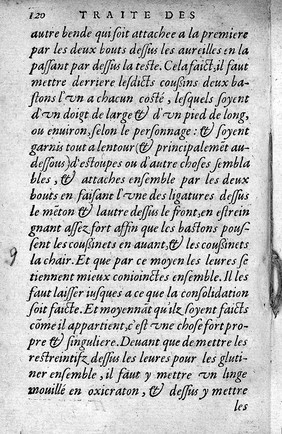 120 TRAITE DES
autre bende qui soit attachee a la premiere
par les deux bouts dessus les aureilles en la
passant par dessus la teste. Cela faict, il faut
mettre derriere lesdicts coußins deux ba-
stons l'vn a chacun costé, lesquels soyent
d'vn doigt de large & d'vn pied de long,
ou enuiron, selon le personnage: & soyent
garnis tout a lentour (& principalemẽt au-
dessous) d'estoupes ou d'autre choses sembla
bles, & attaches ensemble par les deux
bouts en faisant l'vne des ligatures dessus
le mẽton & lautre dessus le front, en estrein
gnant assez fort affin que les bastons pous-
sent les coußinets en auant, & les coußinets
la chair. Et que par ce moyen les leures se
tiennent mieux conioinctes ensemble. Il les
faut laisser iusques a ce que la consolidation
soit faicte. Et moyennãt qu'ilz soyent faicts
cõme il appartient, c'est vne chose fort pro-
pre & singuliere. Deuant que de mettre les
restreintifz dessus les leures pour les gluti-
ner ensemble, il faut y mettre vn linge
mouillé en oxicraton, & dessus y mettre
les